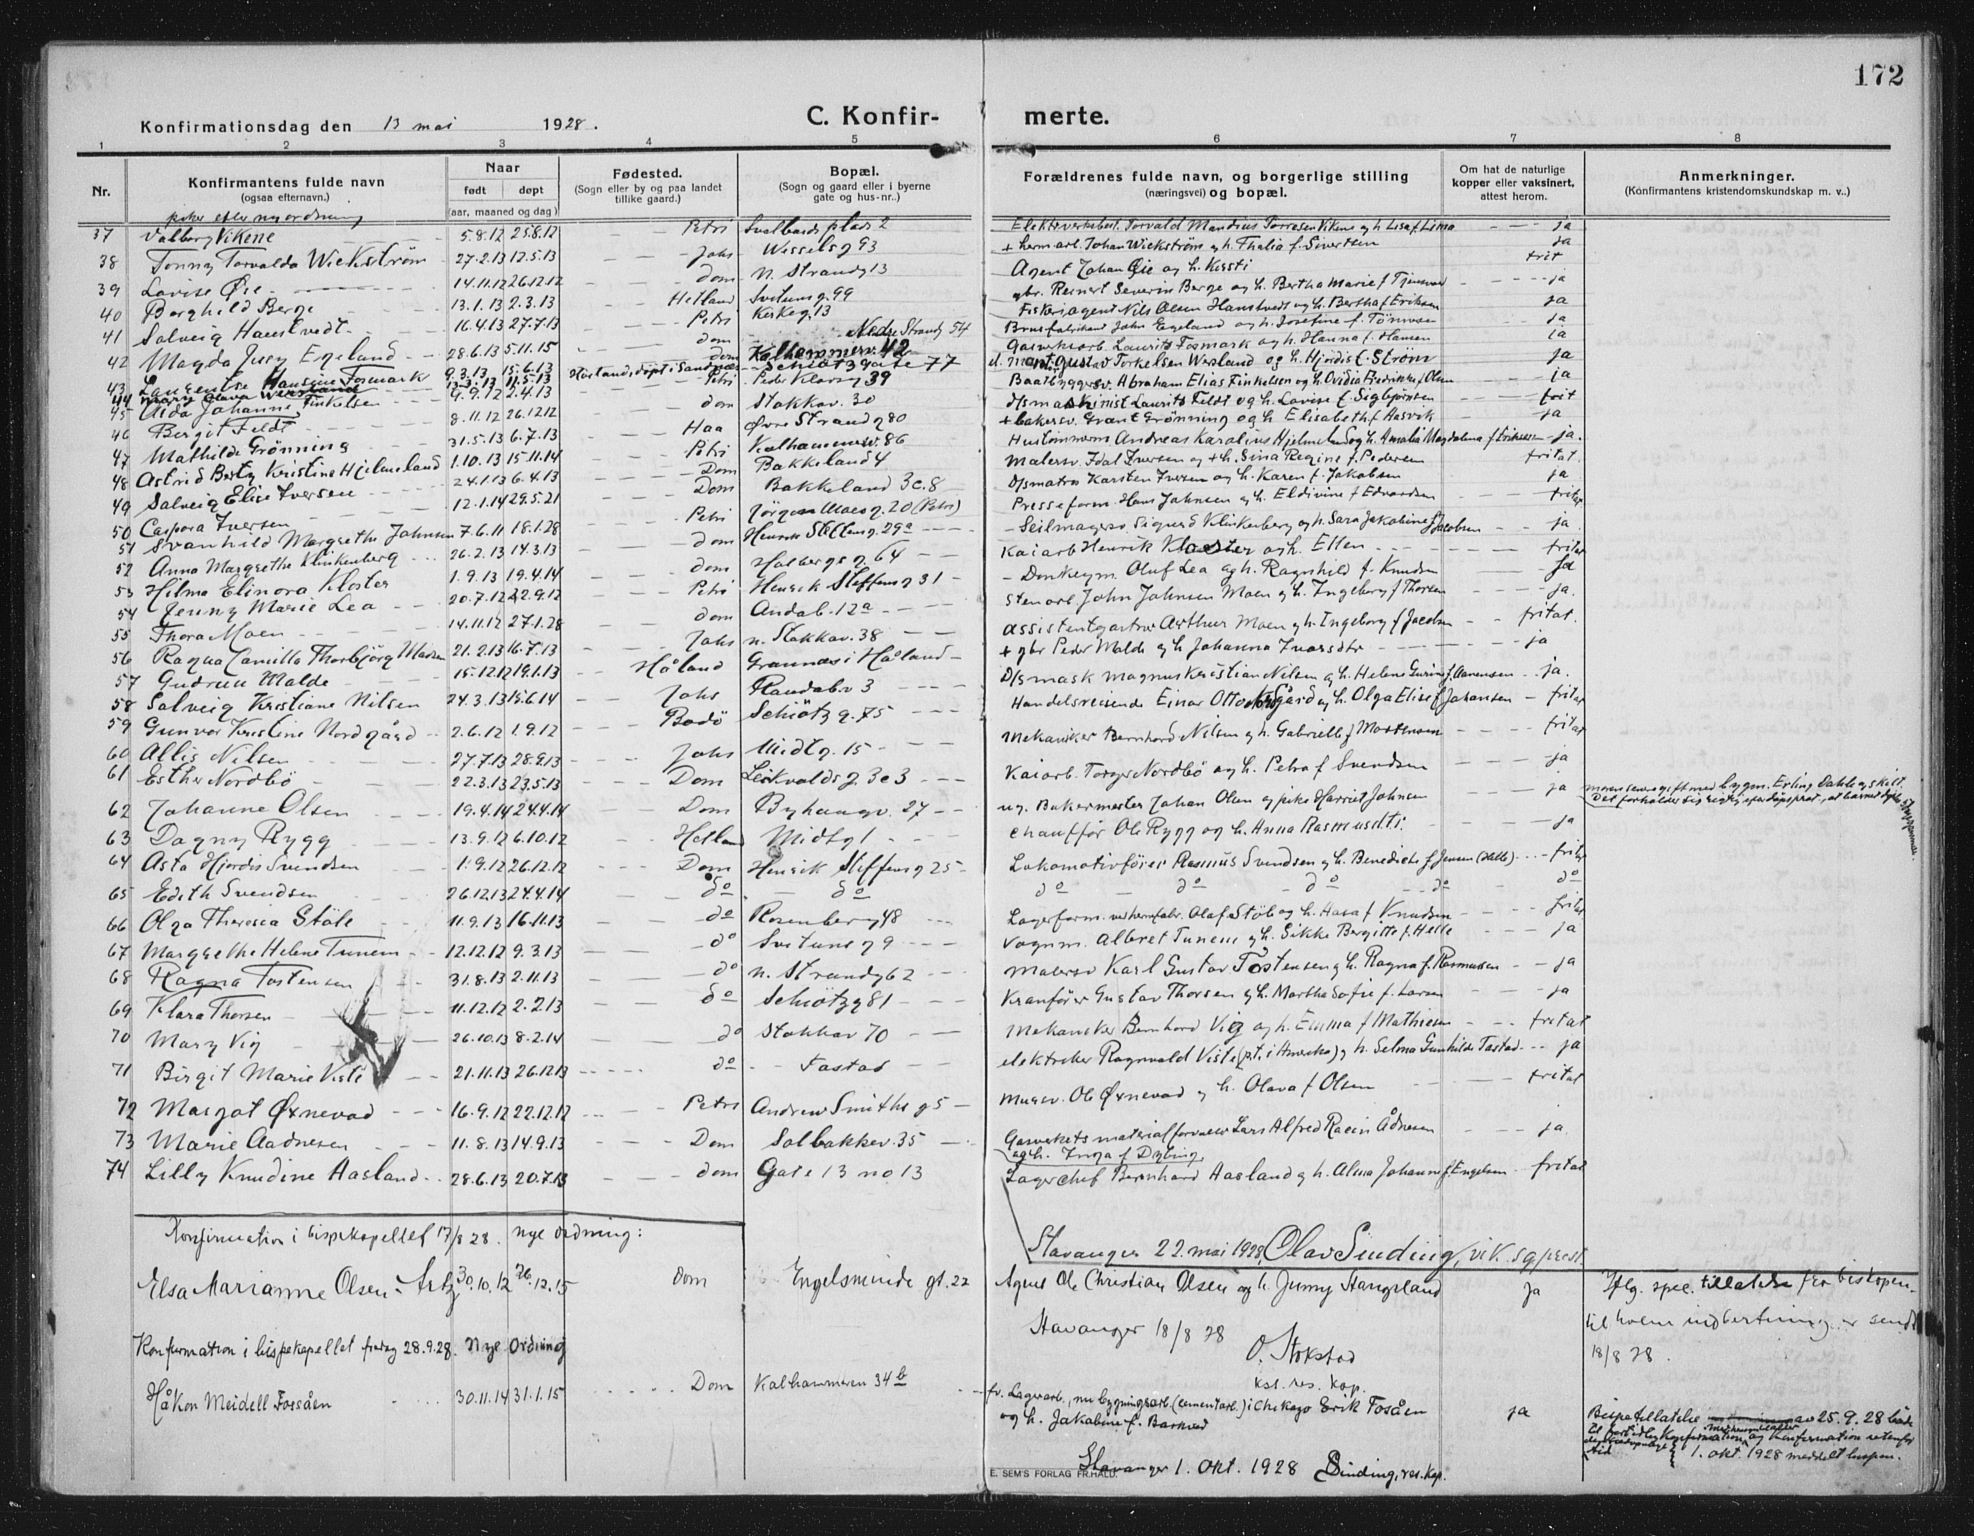 172
Konfirmationsdag den 13 mai 1928.
C. Konfir- merte.
1 2 3 4 5 6 7 8
Nr. Konfirmantens fulde navn (ogsaa efternavn.) Naar født døpt (aar, maaned og dag) Fødested. (Sogn eller by og paa landet tillike gaard.) Bopæl. (Sogn og gaard eller i byerne gate og hus-nr..) Forældrenes fulde navn, og borgerlige stilling (næringsvei) og bopæl. Om hat de naturlige kopper eller vaksinert, attest herom. Anmerkninger. (Konfirmantens kristendomskundskap m. v..)
piker efter ny ordning
37 Valborg Vikene 5.8.12 25.8.12 Petri Svalbards plads 2 ja
38 Tonny Torvalda Wickstrøm 27.2.13 12.5.13 Johs Wesselsg 93 + herm.arb. Johan Wickstrøm og h. Thalia f. Sivertsen ja
39 Lovise Øie 14.11.12 26.12.12 dom n. Strandg 13 Agent Johan Øie og h. Kirsti frit
40 Borghild Berge 13.1.13 2.3.13 Hetland Svituns g. 99 gbr. Reinert Severin Berge og h. Bertha Marie f ja
41 Solveig Hanstvedt 16.4.13 27.7.13 Petri Kirkeg. 13 Fiskeriagent Nils Olsen Hanstvedt og h. Bertha f Eriksen ja
42 Magda Egeland 28.6.13 5.11.15 dom Nedre Strandg 54 Brusfabrikant John Egeland og h. Josefine f. ja
43 Hansine Fosmark 9.3.13 15.6.13 dom Kalhammerv. 42 Gasverksarb. Laurits Fosmark og h. Hanna f. Hansen ja
44 11.5.13 døpt i Sandnes Schiøtz gate 77 Gustav Torkelsen og h. Hjørdis f. Strøm ja
45 Aida Johanne Finkelsen 9.9.12 2.4.13 Petri 39 Baatbyggersv. Abraham Elias Finkelsen og h. Ovidia Fredrikke f Olsen ja
46 Bergit Feldt 8.11.12 26.12.12 dom Stokkav. 30 D/s maskinist Laurits Feldt og h. Lovise f. Sigbjørnsen frit
47 Mathilde Grønning 31.5.13 6.7.13 Haa Øvre Strandg 80 + bakersv. Grønning og h. Elisabeth f Aasvik ja
48 Astrid Kristine Hjelmeland 1.10.13 15.11.14 Petri Kalhammerv. 86 Andreas Karolius Hjelmeland og h. Amalie Magdalena f Eriksen ja.
49 Solveig Elise Iversen 24.1.13 6.4.13 Dom Bakkeland 4 Malersv. Iversen og + h. Sina Regine f. Pedersen fritat.
50 Caspora Iversen 12.1.14 29.5.21 Dom Bakkeland 3c. 8 D/s matros Karsten Iversen og h. Karen f. Jakobsen ja
51 Svanhild Margrethe Johnsen 7.6.11 18.1.28 Petri Jørgen Moes g. 20 (Petri) Presseform. Hans Johnsen og h. Eldivine f Edvardsen fritat
52 Anna Margrethe Klinkenberg 26.2.13 14.3.13 dom Henrik Steffens g. 29a Seilmagersv. Sigurd Klinkenberg og h. Sara Jakobine f Jacobsen ja
53 Hilma Elinora Kloster 1.9.13 19.4.14 dom Holbergs g. 64 Kaiarb Henrik Kloster og h. Ellen fritat
54 Jenny Marie Lea 20.7.12 22.9.12 Petri Henrik Steffens g 31 Donkeym. Oluf Lea og h. Ragnhild f. Knudsen Ja
55 Thora Moen 14.11.12 27.1.28 dom Andab. 12a Stenarb. John Johnsen Moen og h. Ingeborg f Thorsen ja.
56 Ragna Camilla Thorbjørg 21.2.13 16.7.13 Johs n. Stokkav. 38 Arthur Moen og h. Ingeborg f Jacobsen fritat.
57 Gudrun Malde 15.12.12 19.1.13 Håland Grannes i Håland + gbr Peder Malde og h Johanna Ivarsdtr ja
58 Solveig Kristiane Nilsen 24.3.13 15.6.14 Johs Randabv 3 D/s mask Magnus Kristian Nilsen og h. Helene ja.
59 Gunvor Kristine Nordgård 2.6.12 1.9.12 Bodö Schiøtz g. 75 Handelsreisende Einar Otto Nordgård og h. Olga Elise f Johansen fritat
60 Allis Nilsen 27.7.13 28.9.13 Johs Midtg. 15 Mekaniker Bernhard Nilsen og h. Gabrielle f Mortensen fritat
61 Esther Nordbö 22.3.13 23.5.13 Dom g. 3c3 Kaiarb. Torger Nordbö og h. Petra f Svendsen ja
62 Johanne Olsen 19.4.14 24.4.14 Dom Byhaugv. 27 ug. Bakermester Johan Olsen og pike Harriet Johnsen ja moren senere gift med bygm. Erling Dahle og skilt.
63 Dagny Rygg 13.9.12 6.10.12 Hetland Midtg 1 Chauffør Ole Rygg og h. Anna Rasmusdtr. ja
64 Asta Hjørdis Svendsen 1.9.12 26.12.12 Dom Henrik Steffens g 25 Lokomotivfører Rasmus Svendsen og h. Benedicte f Jensen (Helle) fritat
65 Edith Svendsen 26.12.13 24.4.14 do do do do do do do
66 Olga Theresia Støle 11.9.13 16.11.13 do Rosenberg 48 Lagerform. ved hermfabr. Olaf Støle og h. f Knudsen fritat
67 Margrethe Helene Tunem 12.12.12 9.3.13 do Svituns g 9 Vognm. Albret Tunem og h. Sikke Bergitte f. Helle ja
68 Ragna Tostensen 31.8.13 2.11.13 do n. Strandg 62 Malersv Karl Gustav Tostensen og h. Ragna f. Rasmussen ja
69 Klara Thorsen 11.12.12 2.2.13 do Schiøtz g 81 Kranfører Gustav Thorsen og h. Martha Sofie f. Larsen ja
70 Mary Vig 26.10.13 8.2.14 do Stokkav 70 Mekaniker Bernhard Vig og h. Emma f Mathiesen fritat
71 Birgit Marie Viste 21.11.13 26.12.13 do Tastad elektriker Ragnvald Viste (p.t. i Amerika) og h. Selma Gunhilde Tastad ja
72 Margot Øxnevad 16.9.12 22.12.12 Petri Andrew Smiths g 5 Mursv. Ole Øxnevad og h. Olava f Olsen fritat
73 Marie Aadnesen 11.8.13 14.9.13 Dom Solbakkev. 35 Gasverkets materialforvalter Lars Alfred Ådnesen ja.
og h. Inga f Dybing
74 Lilly Knudine Aasland 28.6.13 20.7.13 dom Gate 13 no 13 Lagerchef Bernhard Aasland og h. Alma Johanne f. Engelsen fritat
Stavanger 22. mai 1928, Olav Sinding, vik. sogneprest
Konfirmation i bispekapellet 17/8 28. nye ordning:
Elsa Marianne Olsen 30.10.12 26.12.15 dom Engelsminde gt. 22 Agent Ole Christian Olsen og h. Jenny Stangeland ja Iflg. spec. tillatelse fra biskopen.
til hvem indberetning er sendt
18/8 28.
Stavanger 18/8 28
O. Stokstad
kst. res. kap.
Konfirmation i bispekapellet fredag 28.9.28. Nye Ordning
Håkon Meidell Fossåen 30.11.14 31.1.15 Dom Kalhammeren 34b fv. Lagerarb., nu bygningsarb. (cementarb.) i Chikago Erik Fosåen ja
og h. Jakobine f. Barkved
Bispetillatelse av 25.9.28
1. okt. 1928 meddelt bispen.
Stavanger 1. okt. 1928 Sinding, res. kap.
E. SEM'S FORLAG FR.HALD.